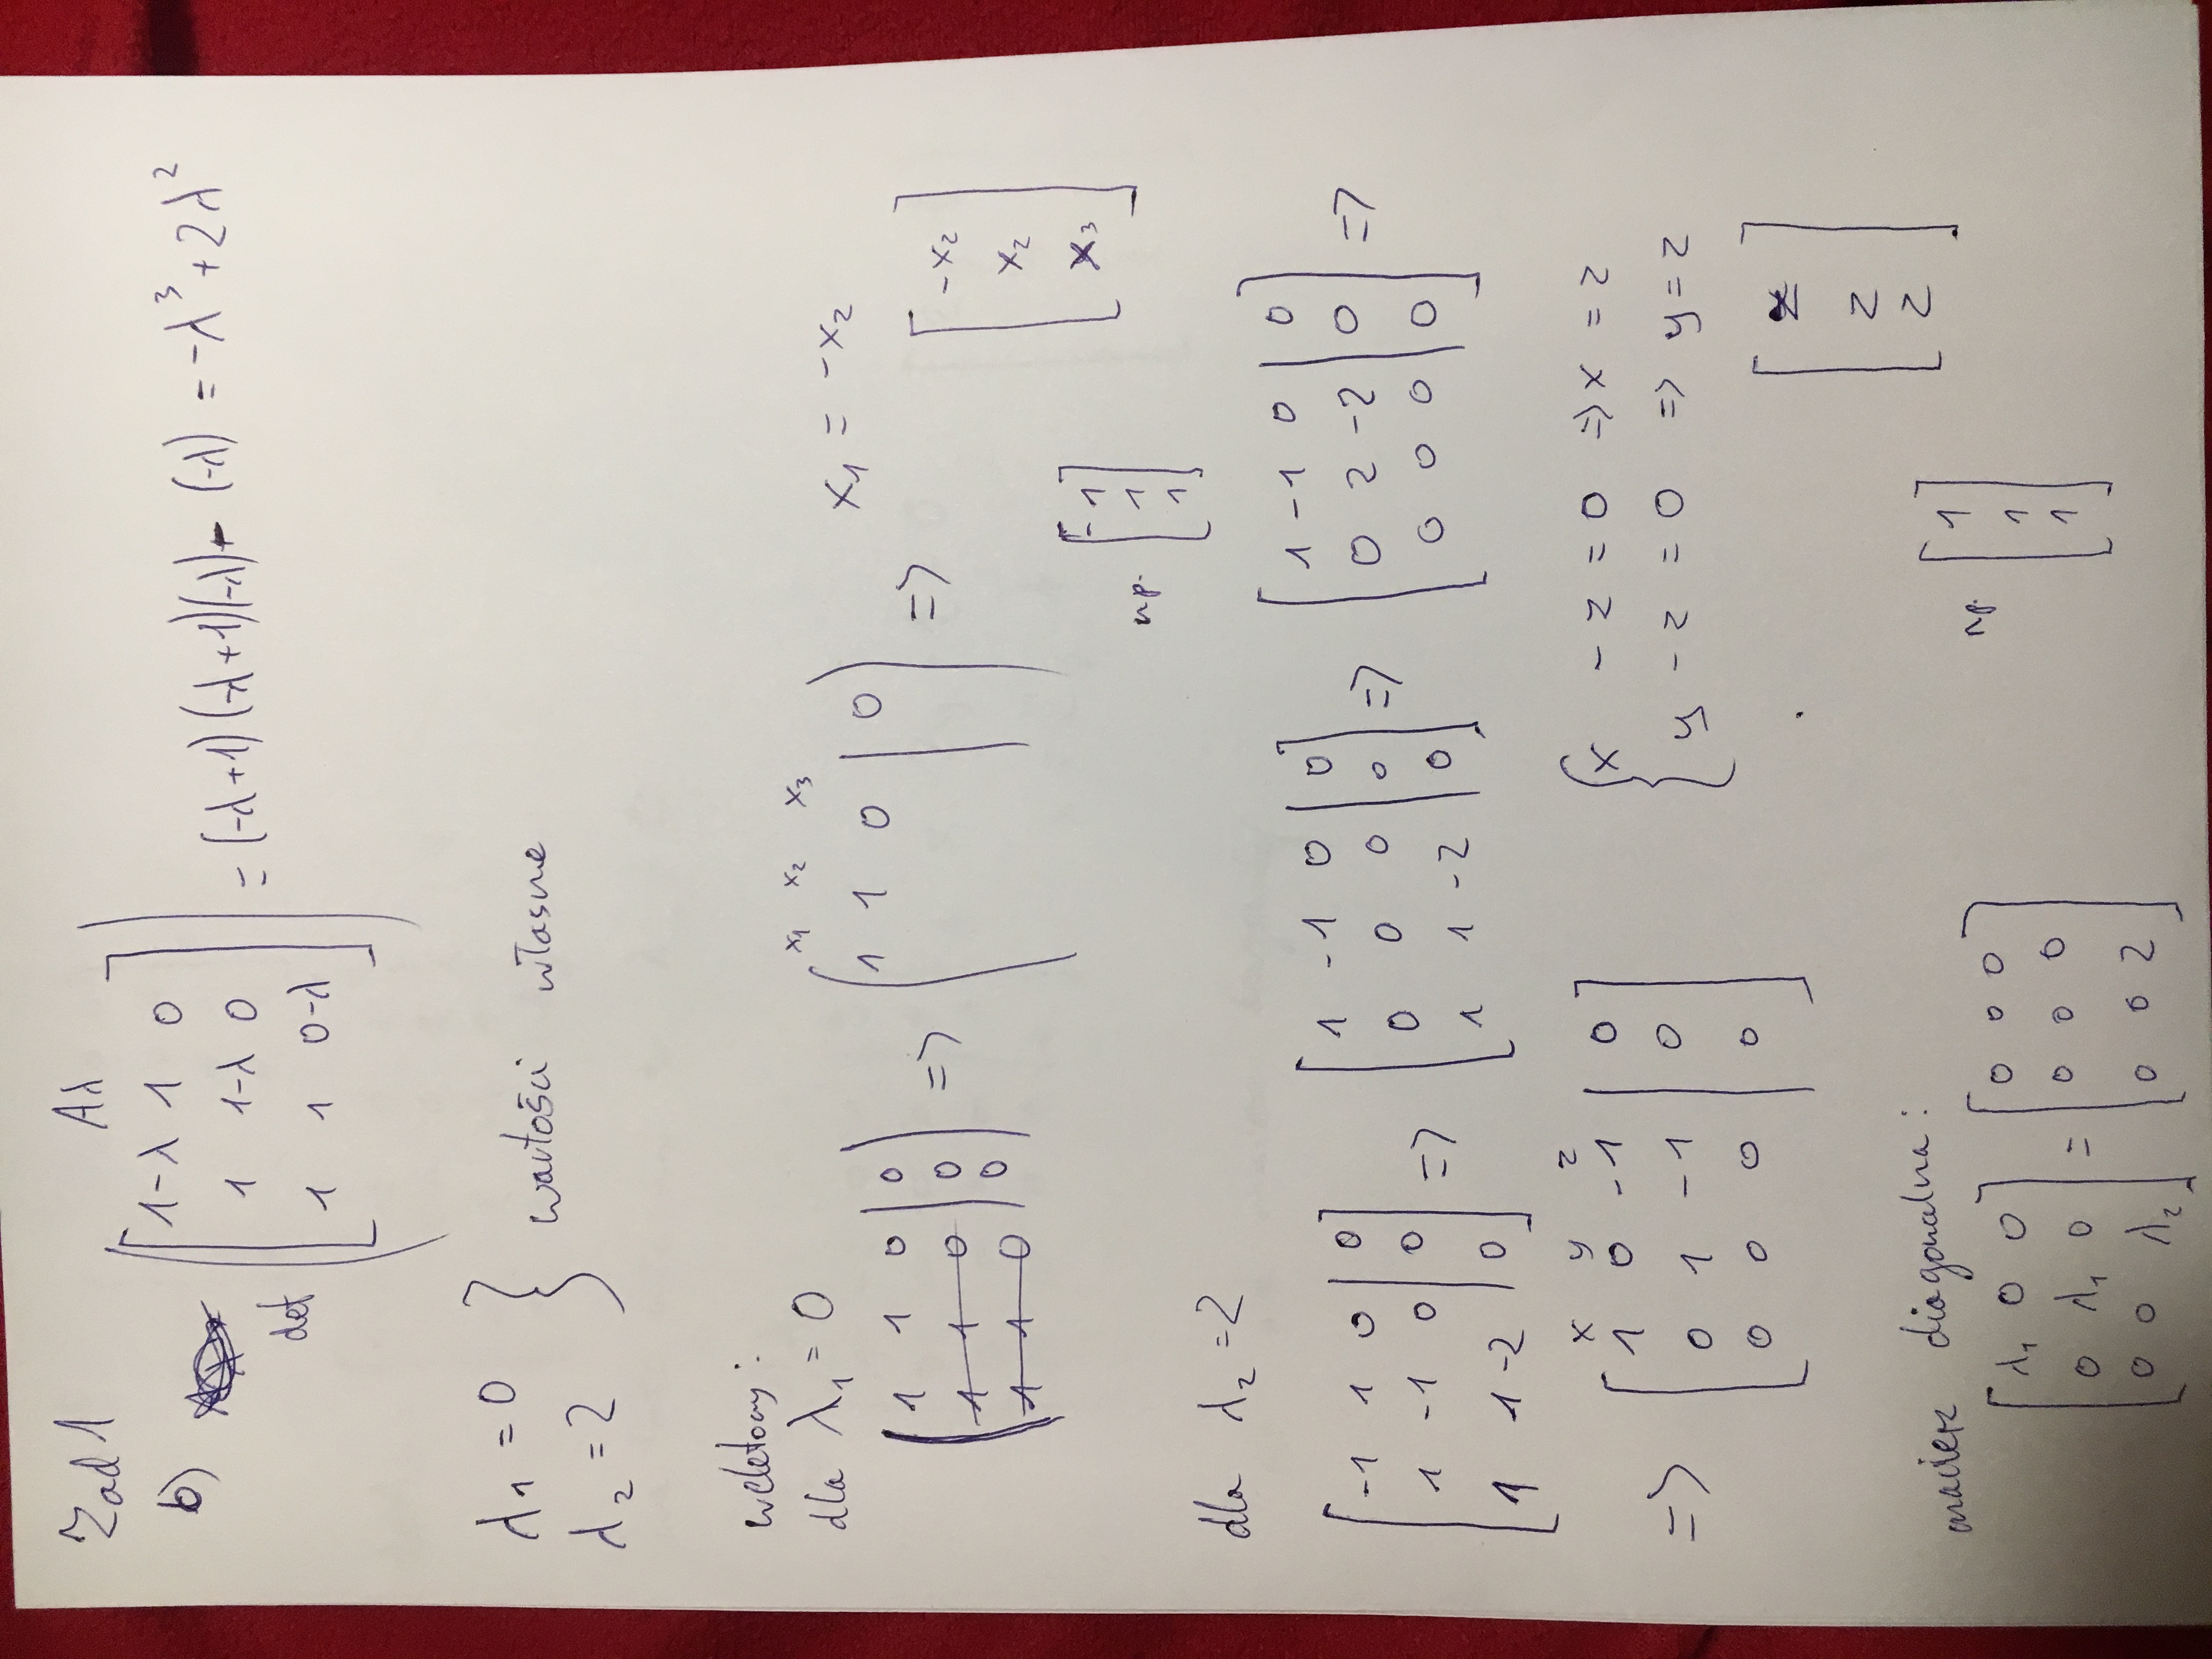 Zad 1
Aλ
b) det ([1-λ 1 0
1 1-λ 0
1 1 0-λ]) = (-λ+1)(-λ+1)(-λ) - (-λ) = -λ³+2λ²
λ₁ = 0
λ₂ = 2 } wartości własne
wektory:
dla λ₁ = 0
x₁ x₂ x₃
(1 1 0 | 0
1 1 0 | 0
1 1 0 | 0) => (1 1 0 | 0) => x₁ = -x₂
[-x₂
x₂
x₃]
np. [-1
1
1]
dla λ₂ = 2
[-1 1 0 | 0
1 -1 0 | 0
1 1 -2 | 0] => [1 -1 0 | 0
0 0 0 | 0
1 1 -2 | 0] => [1 -1 0 | 0
0 2 -2 | 0
0 0 0 | 0] =>
x y z
=> [1 0 -1 | 0
0 1 -1 | 0
0 0 0 | 0]
{x - z = 0 => x = z
y - z = 0 => y = z
[z
z
z]
np. [1
1
1]
macierz diagonalna:
[λ₁ 0 0
0 λ₁ 0
0 0 λ₂] = [0 0 0
0 0 0
0 0 2]